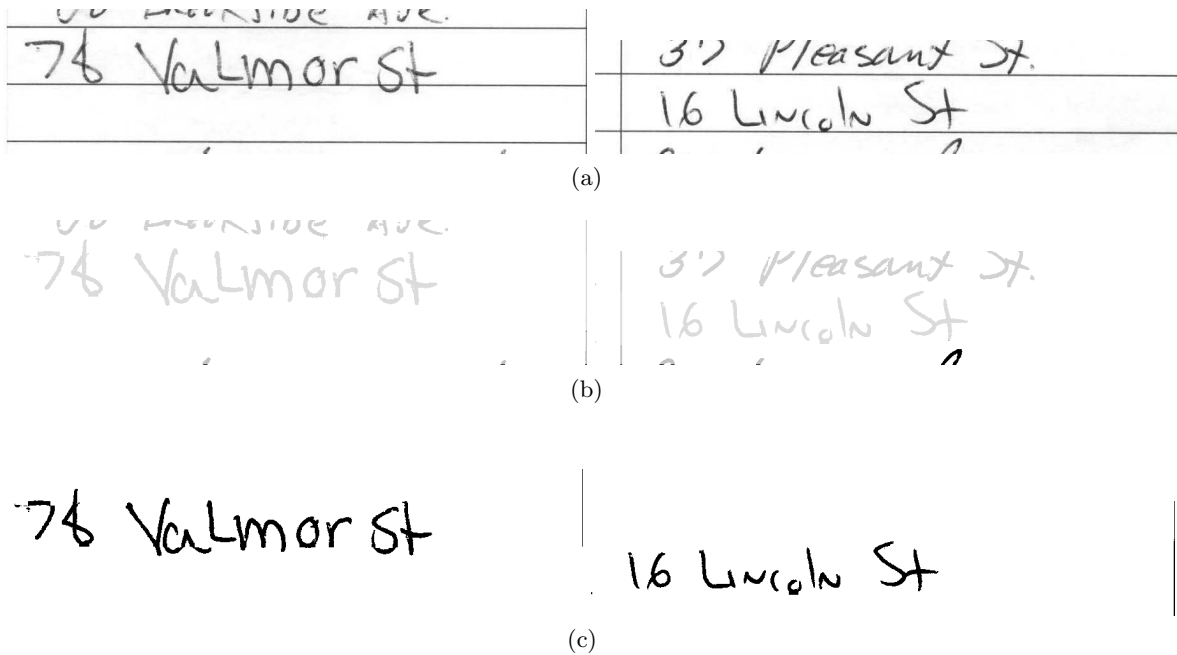 Ave.
78 Valmor St
37 Pleasant St.
16 Lincoln St
(a)
Ave.
78 Valmor St
37 Pleasant St.
16 Lincoln St
(b)
78 Valmor St
16 Lincoln St
(c)